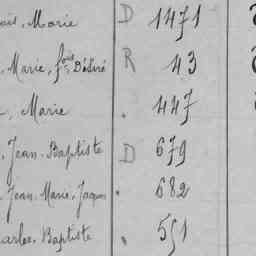 Marie D 1471
, Marie, fois Désiré R 43
, Marie . 447
, Jean-Baptiste D 679
, Jean-Marie, Jacques . 682
Baptiste . 551